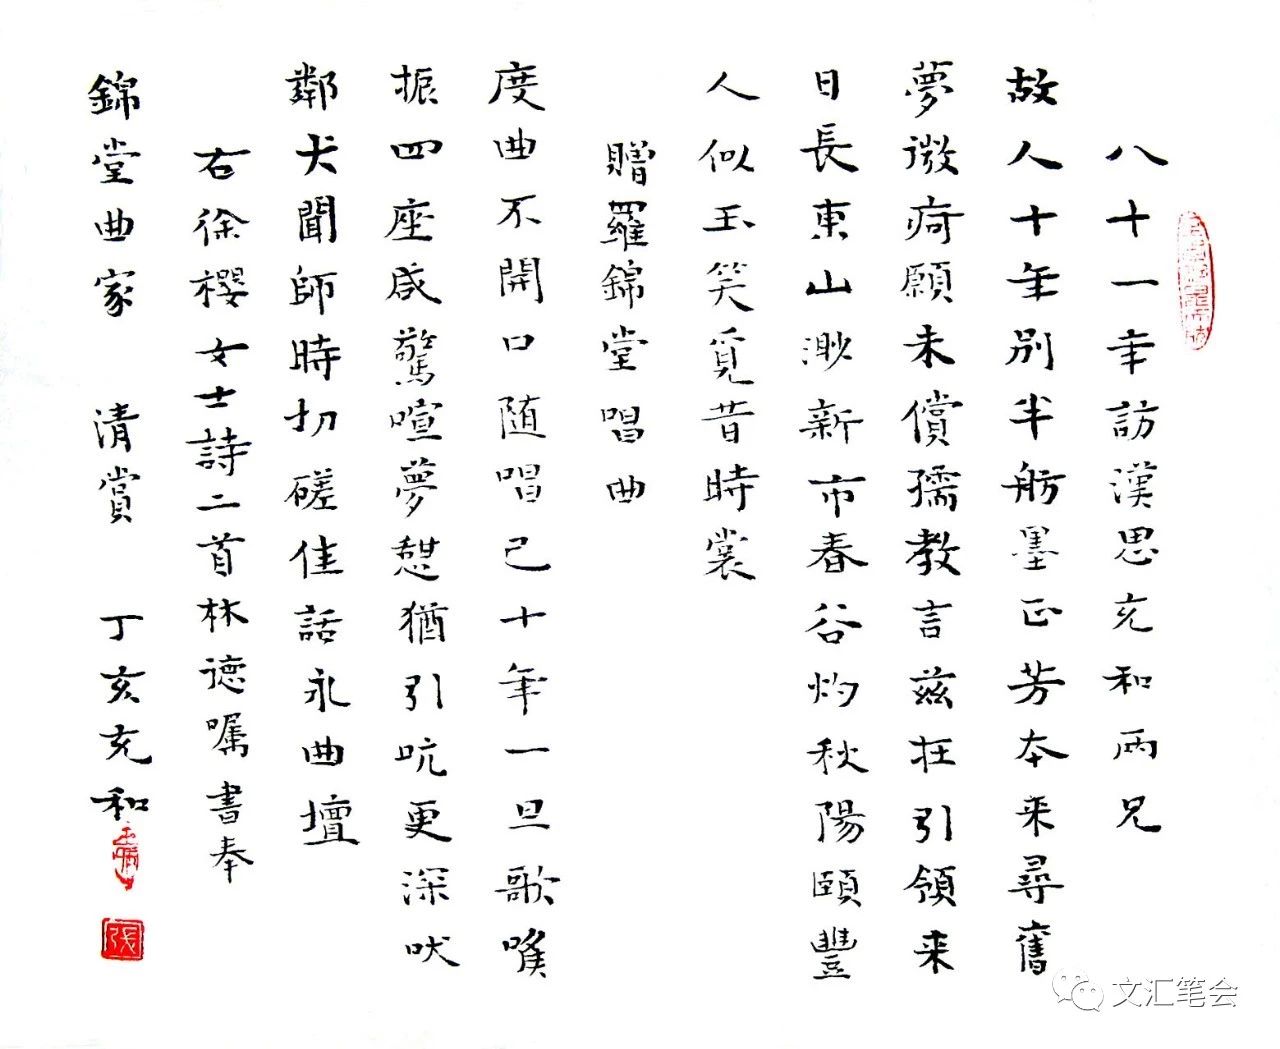 八十一年訪漢思充和兩兄
故人十年別半舫墨正芳本来尋舊
夢微疴願未償孺教言茲在引領来
日長東山渺新市春谷灼秋陽頤豐
人似玉笑覓昔時裳
贈羅錦堂唱曲
度曲不開口随唱已十年一旦歌喉
振四座咸驚喧夢憇猶引吭更深吠
鄰犬聞師時切磋佳話永曲壇
右徐櫻女士詩二首林德囑書奉
錦堂曲家 清賞 丁亥充和
文汇笔会